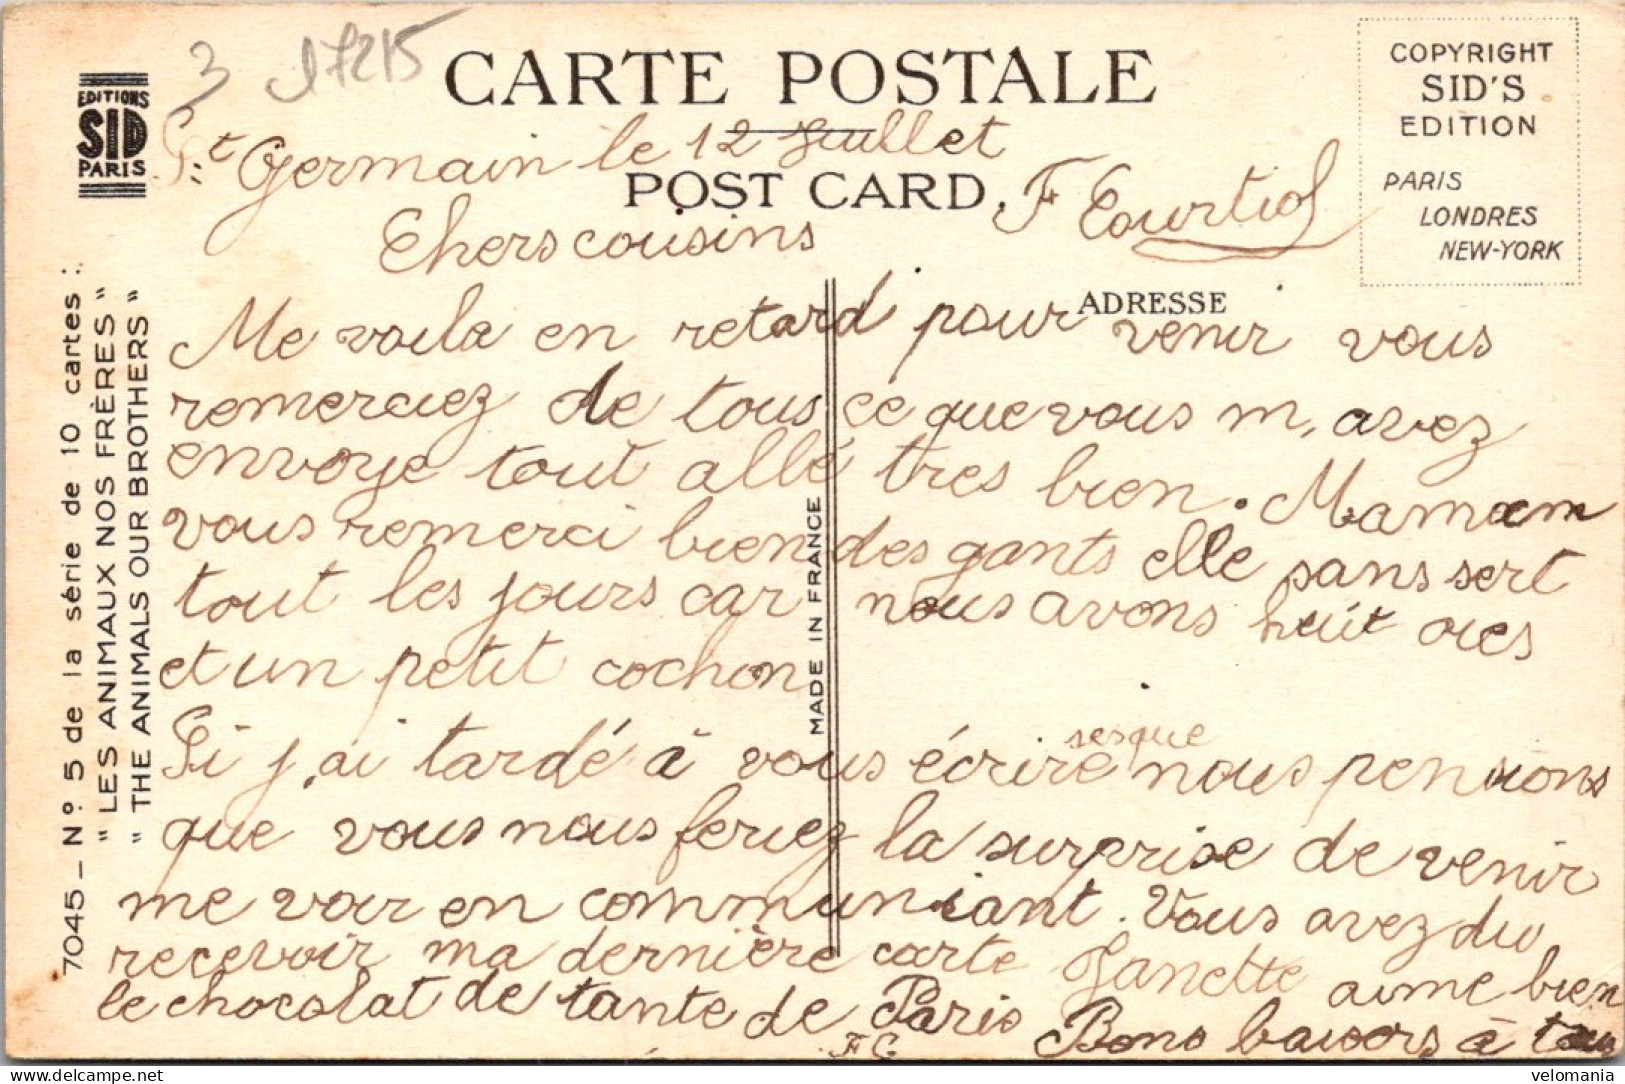 3 17215
CARTE POSTALE
EDITIONS
SID
PARIS
COPYRIGHT
SID'S
EDITION
PARIS
LONDRES
NEW-YORK
St Germain le 12 Juillet
POST CARD
F Courtiol
Chers cousins
ADRESSE
Me voila en retard pour venir vous
remerciez de tous ce que vous m, avez
envoye tout allé tres bien. Maman
vous remerci bien des gants elle sans sert
tout les jours car nous avons huit oies
et un petit cochon
Si j,ai tardé à vous écrire sesque nous pensions
que vous nous feriez la surprise de venir
me voir en communiant. Vous avez du
recevoir ma dernière carte Janette aime bien
le chocolat de tante de Paris Bons baisors à tous
F C
MADE IN FRANCE
7045 _ Nº 5 de la série de 10 cartes :
" LES ANIMAUX NOS FRÈRES "
" THE ANIMALS OUR BROTHERS "
delcampe.net
velomania